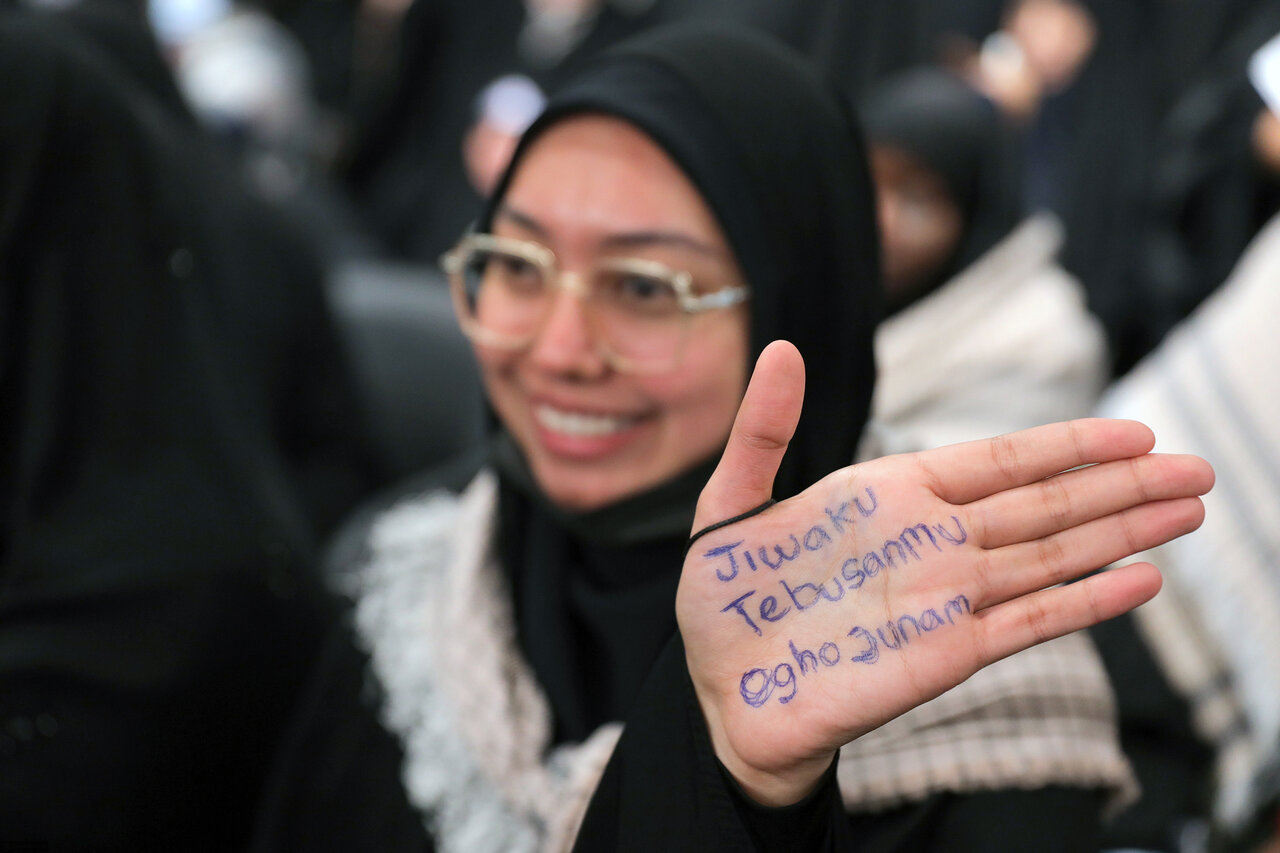 Jiwaku
Tebusanmu
Agho Junam